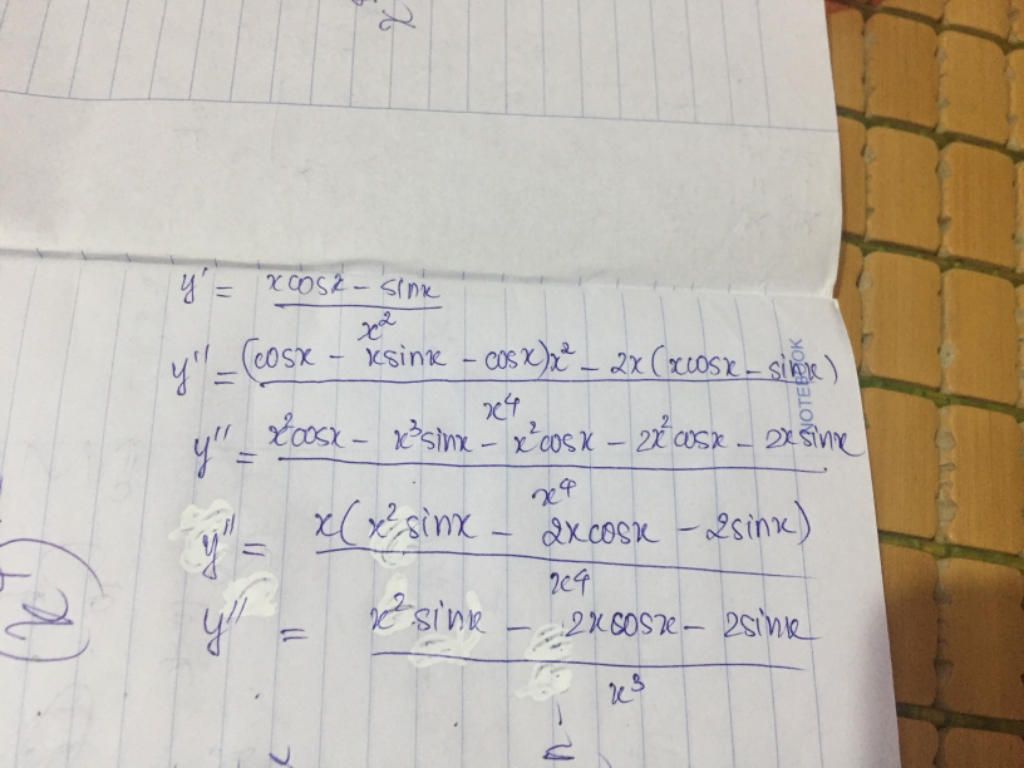 x
y' = xcosx - sinx
x²
y'' = (cosx - xsinx - cosx)x² - 2x(xcosx - sinx)
x⁴
NOTEBOOK
y'' = x²cosx - x³sinx - x²cosx - 2x²cosx - 2xsinx
x⁴
y'' = x(x²sinx - 2xcosx - 2sinx)
x⁴
x
y'' = x²sinx - 2xcosx - 2sinx
x³